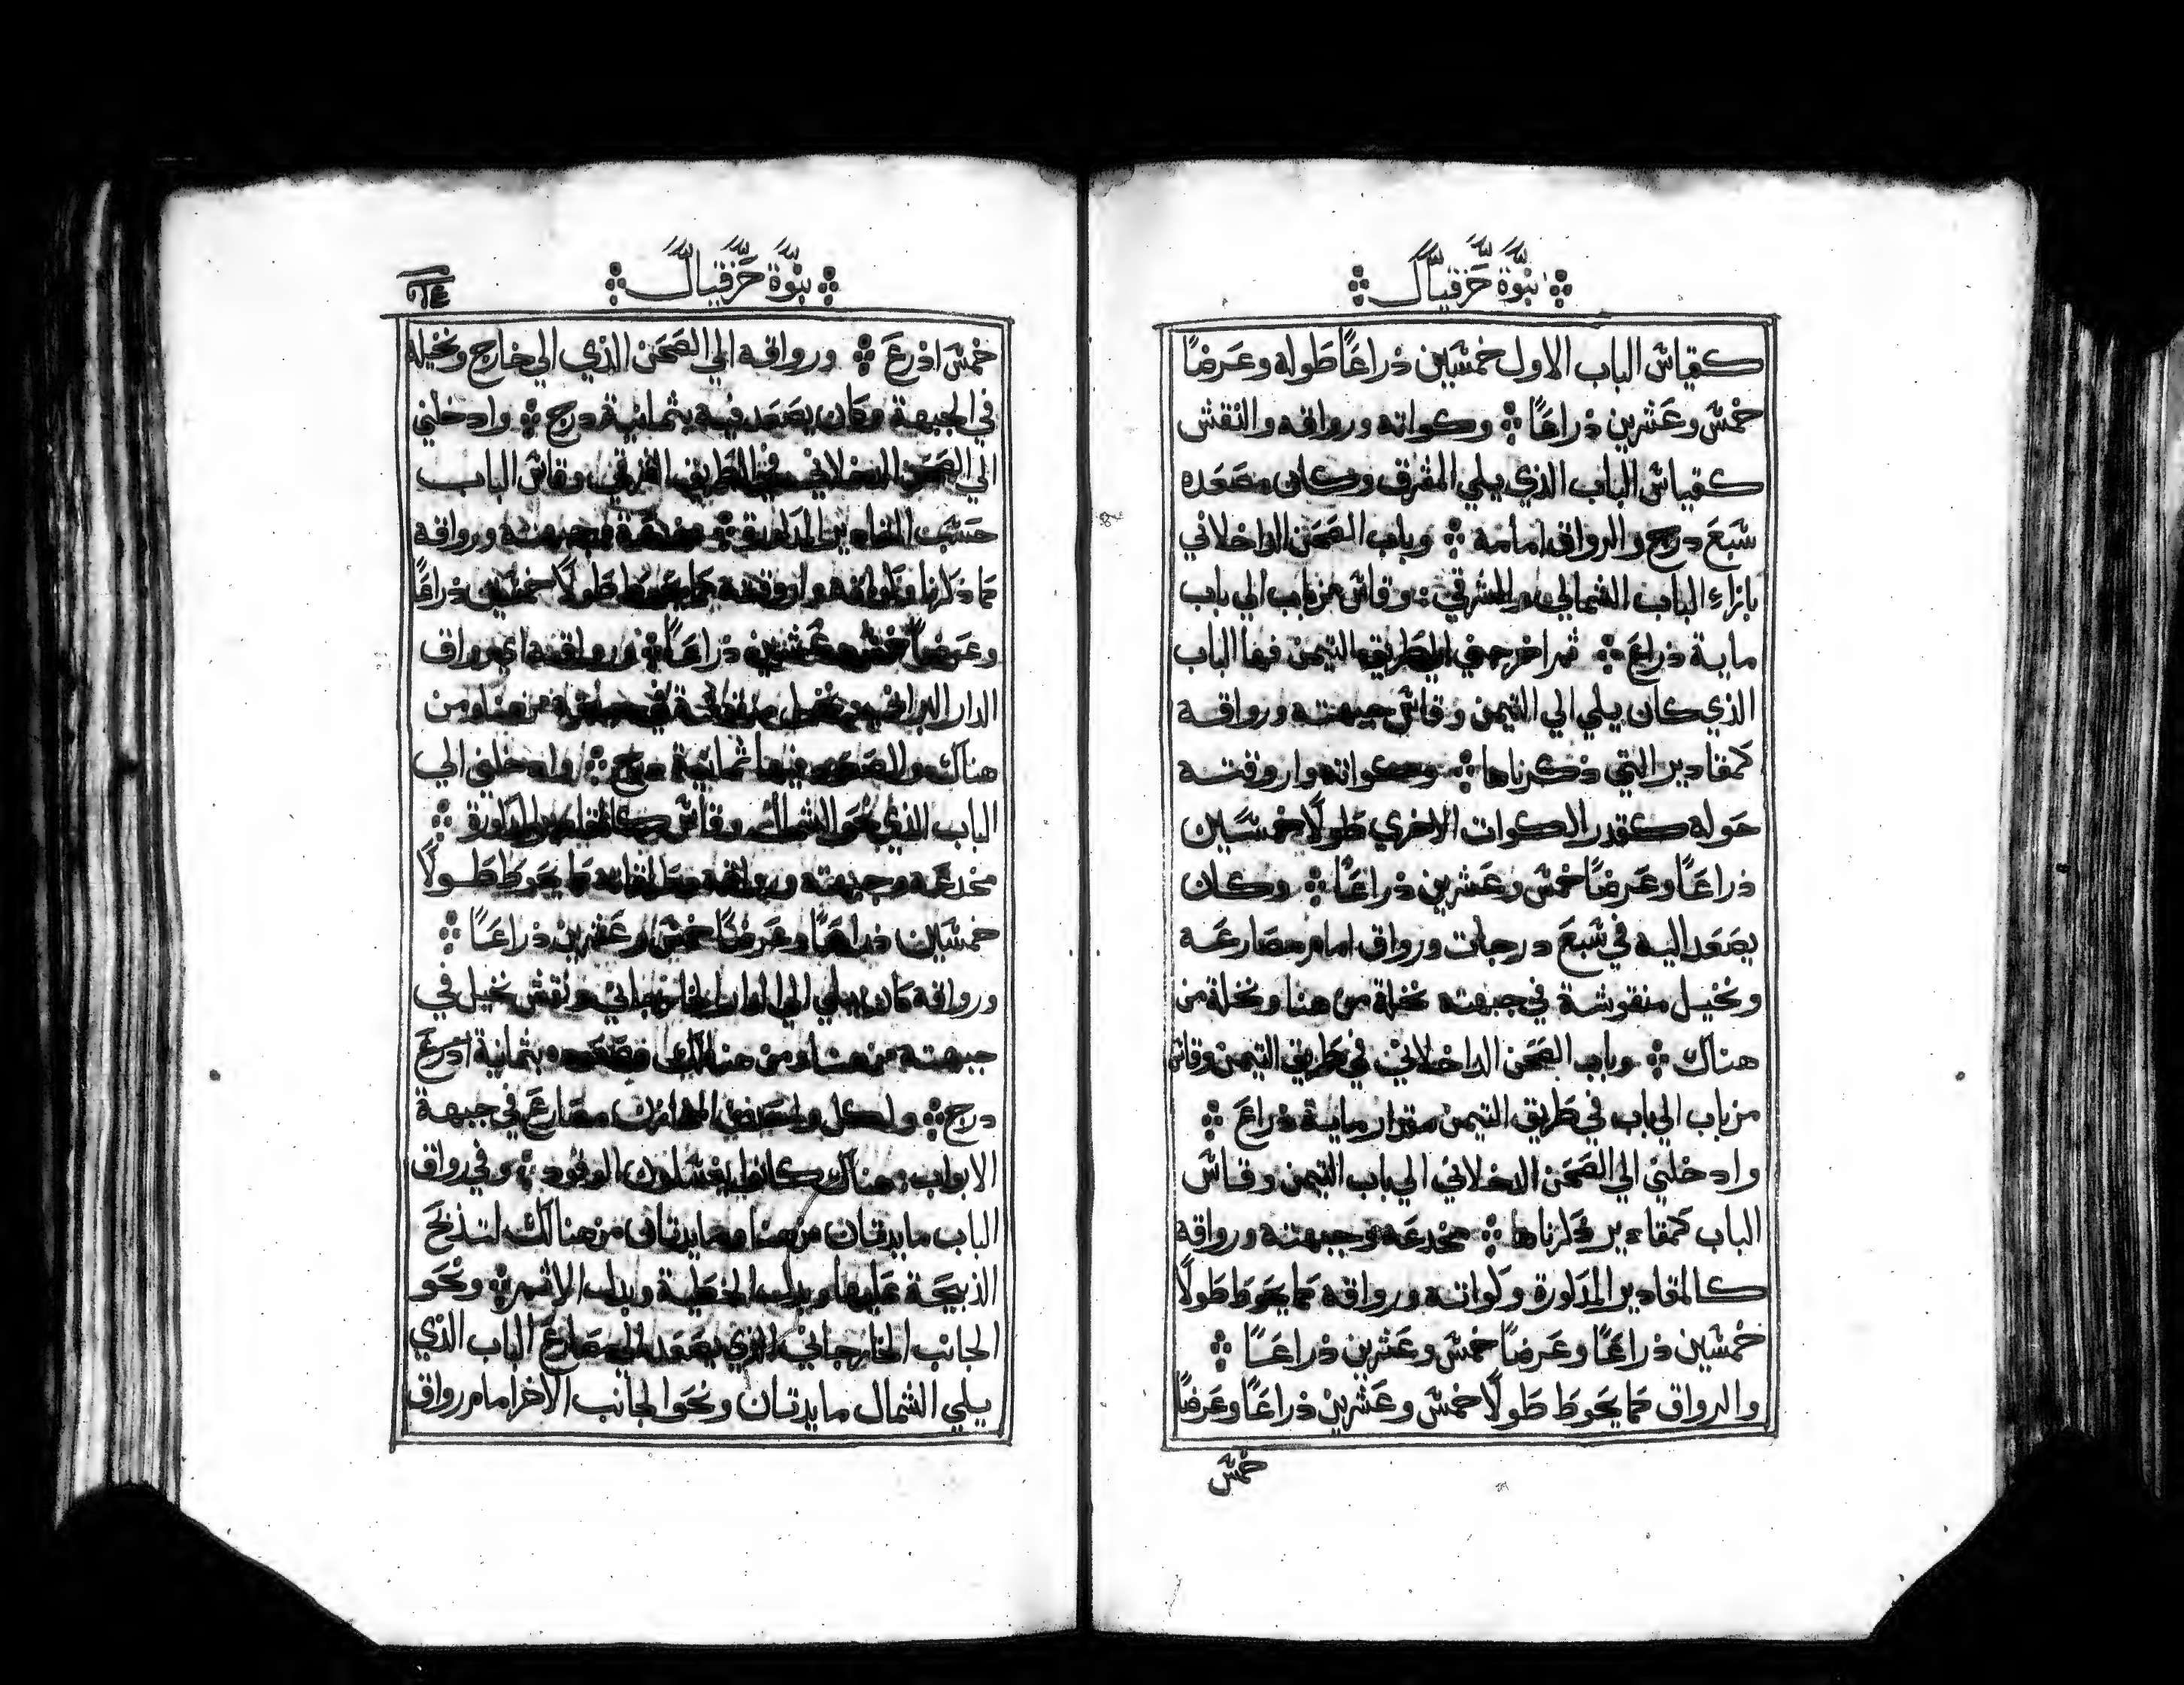 نبوّة حزقيال
كقياس الباب الاول خمسين ذراعًا طوله وعرضًا
خمس وعشرين ذراعًا وكواته ورواقه والنقش
كقياس الباب الذي يلي المشرق وكان مصعده
سبع درج والرواق امامه وباب الصحن الداخلاني
بازاء الباب الشمالي والشرقي وقاس من باب الي باب
ماية ذراع ثم اخرجني الي طريق التيمن فها الباب
الذي كان يلي الي التيمن وقاس جبهته ورواقه
كمقادير التي ذكرناها وكواته واروقته
حوله كقدر الكوات الاخري طولًا خمسين
ذراعًا وعرضًا خمس وعشرين ذراعًا وكان
يصعد اليه في سبع درجات ورواق امام مصارعه
ونخيل منقوشة في جبهته نخلة من هنا ونخلة من
هناك وباب الصحن الداخلاني في طريق التيمن وقاس
من باب الي باب في طريق التيمن مقدار ماية ذراع
وادخلني الي الصحن الدخلاني الي باب التيمن وقاس
الباب كمقادير ذكرناها مخدعه وجبهته ورواقه
كالمقادير المذكورة وكواته ورواقه كما يحوط طولًا
خمسين ذراعًا وعرضًا خمس وعشرين ذراعًا
والرواق كما يحوط طولًا خمس وعشرين ذراعًا وعرضًا
خمس
نبوّة حزقيال
خمس اذرع ورواقه الي الصحن الذي الي خارج ونخيله
في الجبهة وكان يصعد فيه بثمانية درج وادخلني
الي الصحن الدخلاني في الطريق الشرقي وقاس الباب
حسب المقادير المذكورة مخدعه وجبهته ورواقه
كما ذكرنا وكواته واروقته كما يحوط طولًا خمسين ذراعًا
وعرضًا خمس وعشرين ذراعًا ورواقه اي رواق
الدار البراني ونخيل في جبهته من هنا ومن
هناك والصعود فيها ثمانية درج وادخلني الي
الباب الذي نحو الشمال وقاس كالمقادير المذكورة
مخدعه وجبهته ورواقه وطاقاته كما يحوط طولًا
خمسين ذراعًا وعرضًا خمس وعشرين ذراعًا
ورواقه كان يلي الي الدار الخارجاني ونقش نخيل في
جبهته من هنا ومن هناك مصعده بثمانية اذرع
درج ولكل واحد من المخازن مصارع في جبهة
الابواب هناك كانوا يغسلون الوقود وفي رواق
الباب مايدتان من هنا ومايدتان من هناك لتذبح
الذبيحة عليها وبدل الخطية وبدل الاثم ونحو
الجانب الخارجاني الذي يصعد الي مصارع الباب الذي
يلي الشمال مايدتان ونحو الجانب الاخر امام رواق